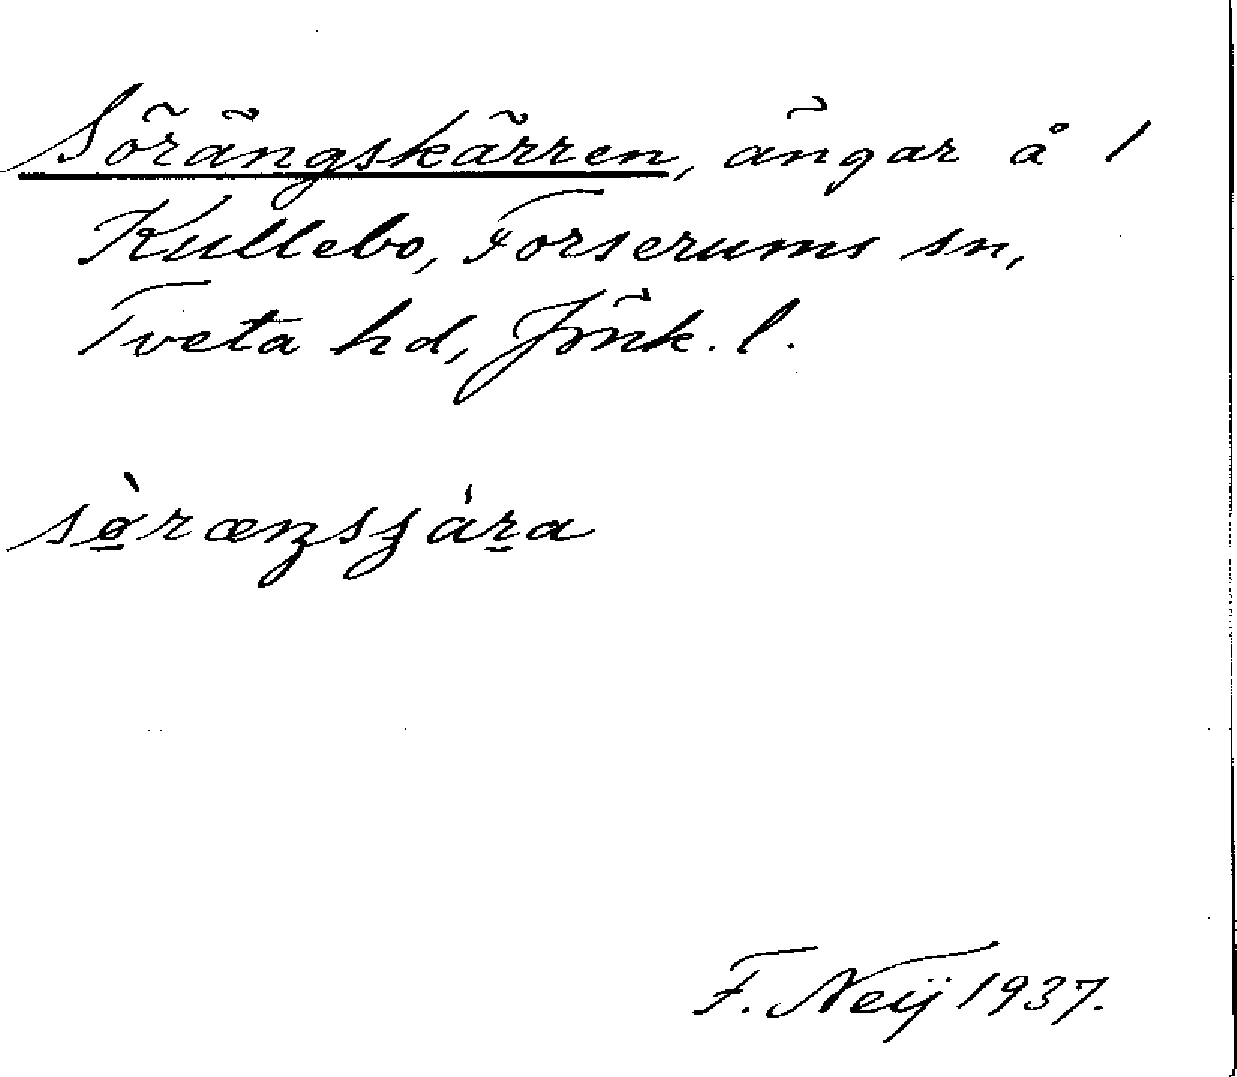 Sörängskärren, ängar å 1
Kullebo, Forserums sn,
Tveta hd, Jönk. l.
sø̀ræŋsʂára
F. Neij 1937.